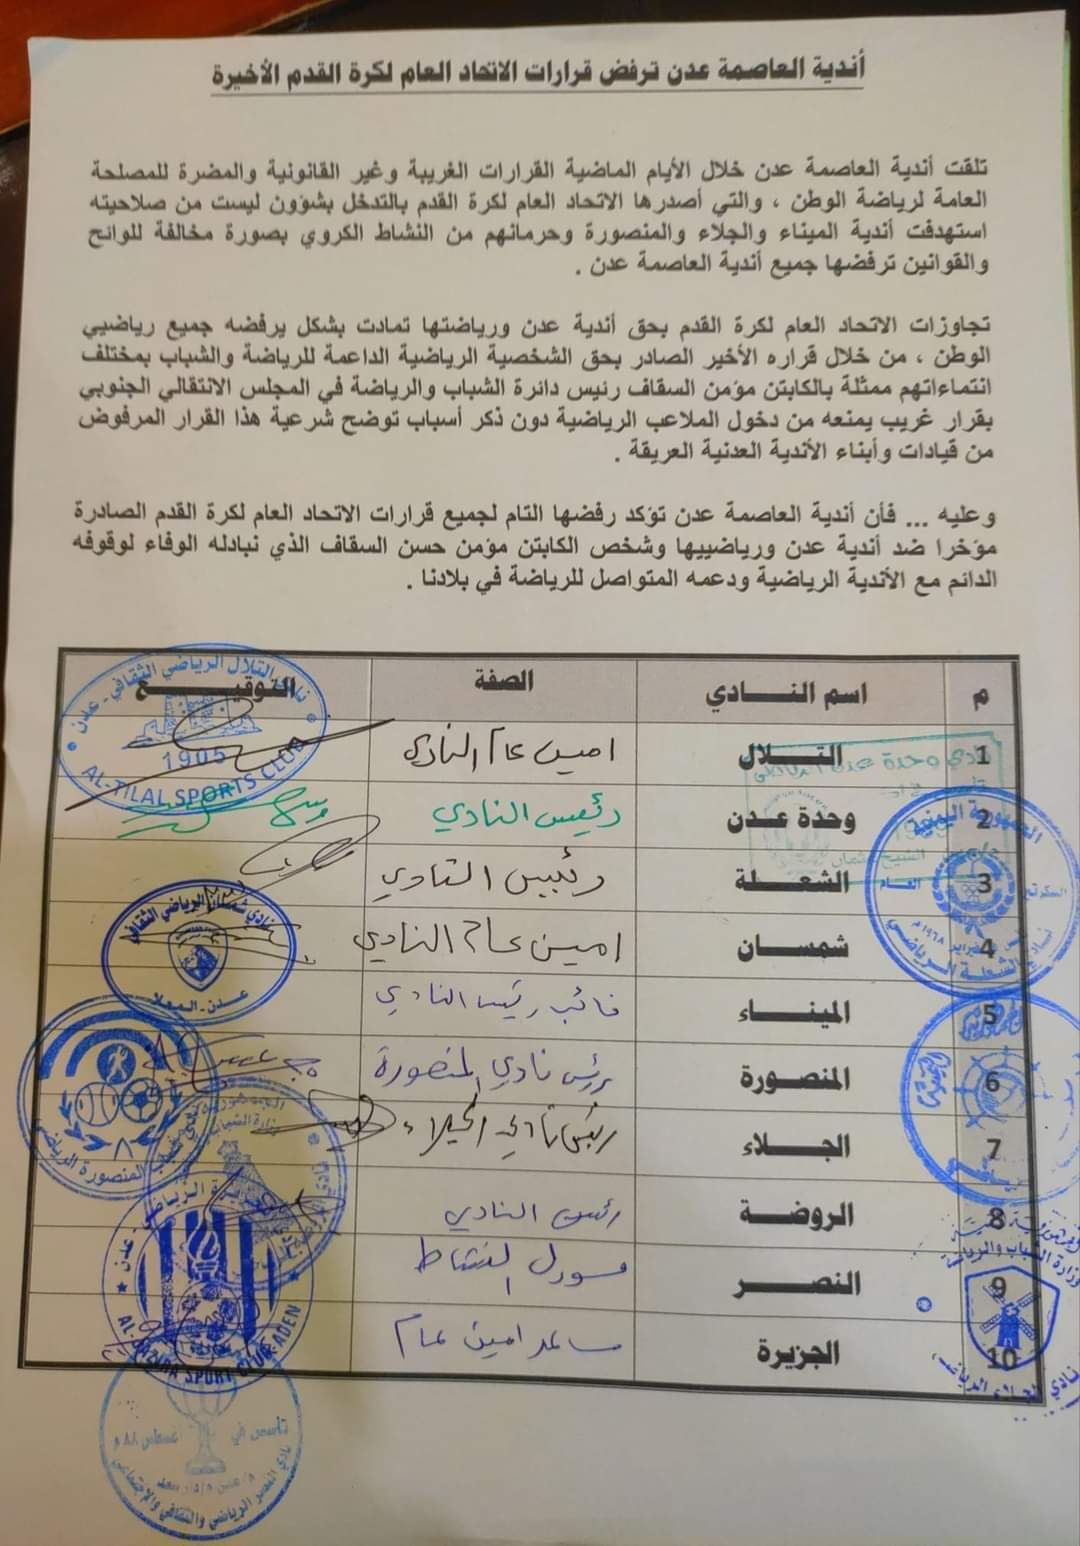 أندية العاصمة عدن ترفض قرارات الاتحاد العام لكرة القدم الأخيرة
تلقت أندية العاصمة عدن خلال الأيام الماضية القرارات الغريبة وغير القانونية والمضرة للمصلحة
العامة لرياضة الوطن ، والتي أصدرها الاتحاد العام لكرة القدم بالتدخل بشؤون ليست من صلاحيته
استهدفت أندية الميناء والجلاء والمنصورة وحرمانهم من النشاط الكروي بصورة مخالفة للوائح
والقوانين ترفضها جميع أندية العاصمة عدن .
تجاوزات الاتحاد العام لكرة القدم بحق أندية عدن ورياضتها تمادت بشكل يرفضه جميع رياضيي
الوطن ، من خلال قراره الأخير الصادر بحق الشخصية الرياضية الداعمة للرياضة والشباب بمختلف
انتماءاتهم ممثلة بالكابتن مؤمن السقاف رئيس دائرة الشباب والرياضة في المجلس الانتقالي الجنوبي
بقرار غريب يمنعه من دخول الملاعب الرياضية دون ذكر أسباب توضح شرعية هذا القرار المرفوض
من قيادات وأبناء الأندية العدنية العريقة .
وعليه ... فأن أندية العاصمة عدن تؤكد رفضها التام لجميع قرارات الاتحاد العام لكرة القدم الصادرة
مؤخرا ضد أندية عدن ورياضييها وشخص الكابتن مؤمن حسن السقاف الذي نبادله الوفاء لوقوفه
الدائم مع الأندية الرياضية ودعمه المتواصل للرياضة في بلادنا .
م اسم النــــادي الصفة التوقيـــــع
1 التـــلال امين عام النادي
2 وحدة عـدن رئيس النادي
3 الشعـــلة رئيس النادي
4 شمســان امين عام النادي
5 المينـــاء نائب رئيس النادي
6 المنصورة رئيس نادي المنصورة
7 الجـــلاء رئيس نادي الجلاء
8 الروضـــة رئيس النادي
9 النصـــر مسؤول النشاط
10 الجزيرة مساعد امين عام
نادي التلال الرياضي الثقافي - عدن
1905
AL-TILAL SPORTS CLUB
نادي شمسان الرياضي الثقافي
عدن - المعلا
المنصورة الرياضي
AL-JAZIRA SPORT CLUB-ADEN
تأسس في أغسطس ٨٨ م
نادي النصر الرياضي والثقافي والاجتماعي
نادي وحدة عدن الرياضي
الجمهورية اليمنية
نادي الشعلة الرياضي
وزارة الشباب والرياضة
نادي الجلاء الرياضي